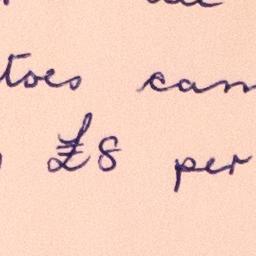 toes can
£8 per